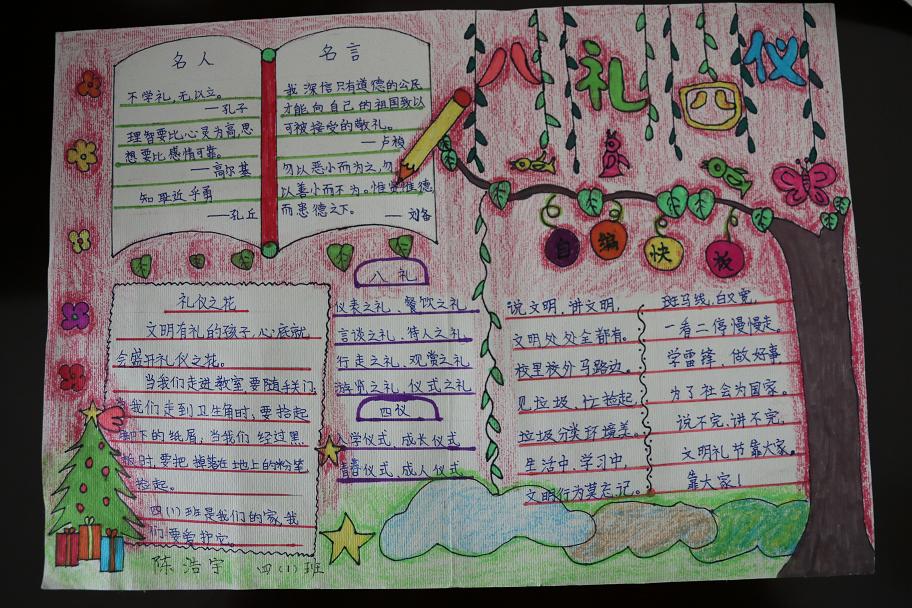 八礼四仪
名人
不学礼,无以立。
——孔子
理智要比心灵为高,思
想要比感情可靠。
——高尔基
知耻近乎勇
——孔丘
名言
我深信只有道德的公民
才能向自己的祖国致以
可被接受的敬礼。
——卢梭
勿以恶小而为之,勿
以善小而不为。惟贤惟德
——刘备
自编快板
礼仪之花
文明有礼的孩子,心底就
会盛开礼仪之花。
当我们走进教室,要随手关门,
我们走到卫生角时,要捡起
下的纸屑,当我们经过黑
时,要把掉落在地上的粉笔
捡起。
四(1)班是我们的家,我
们要爱护它。
陈浩宇 四(1)班
八礼
仪表之礼、餐饮之礼
言谈之礼、待人之礼
行走之礼、观赏之礼
游览之礼、仪式之礼
四仪
入学仪式、成长仪式
青春仪式、成人仪式
说文明,讲文明,
文明处处全都有。
校里校外马路边。
见垃圾、忙捡起,
垃圾分类环境美。
生活中,学习中,
文明行为莫忘记。
斑马线,白又宽,
一看二停慢慢走。
学雷锋、做好事
为了社会为国家。
说不完,讲不完,
文明礼节靠大家。
靠大家!